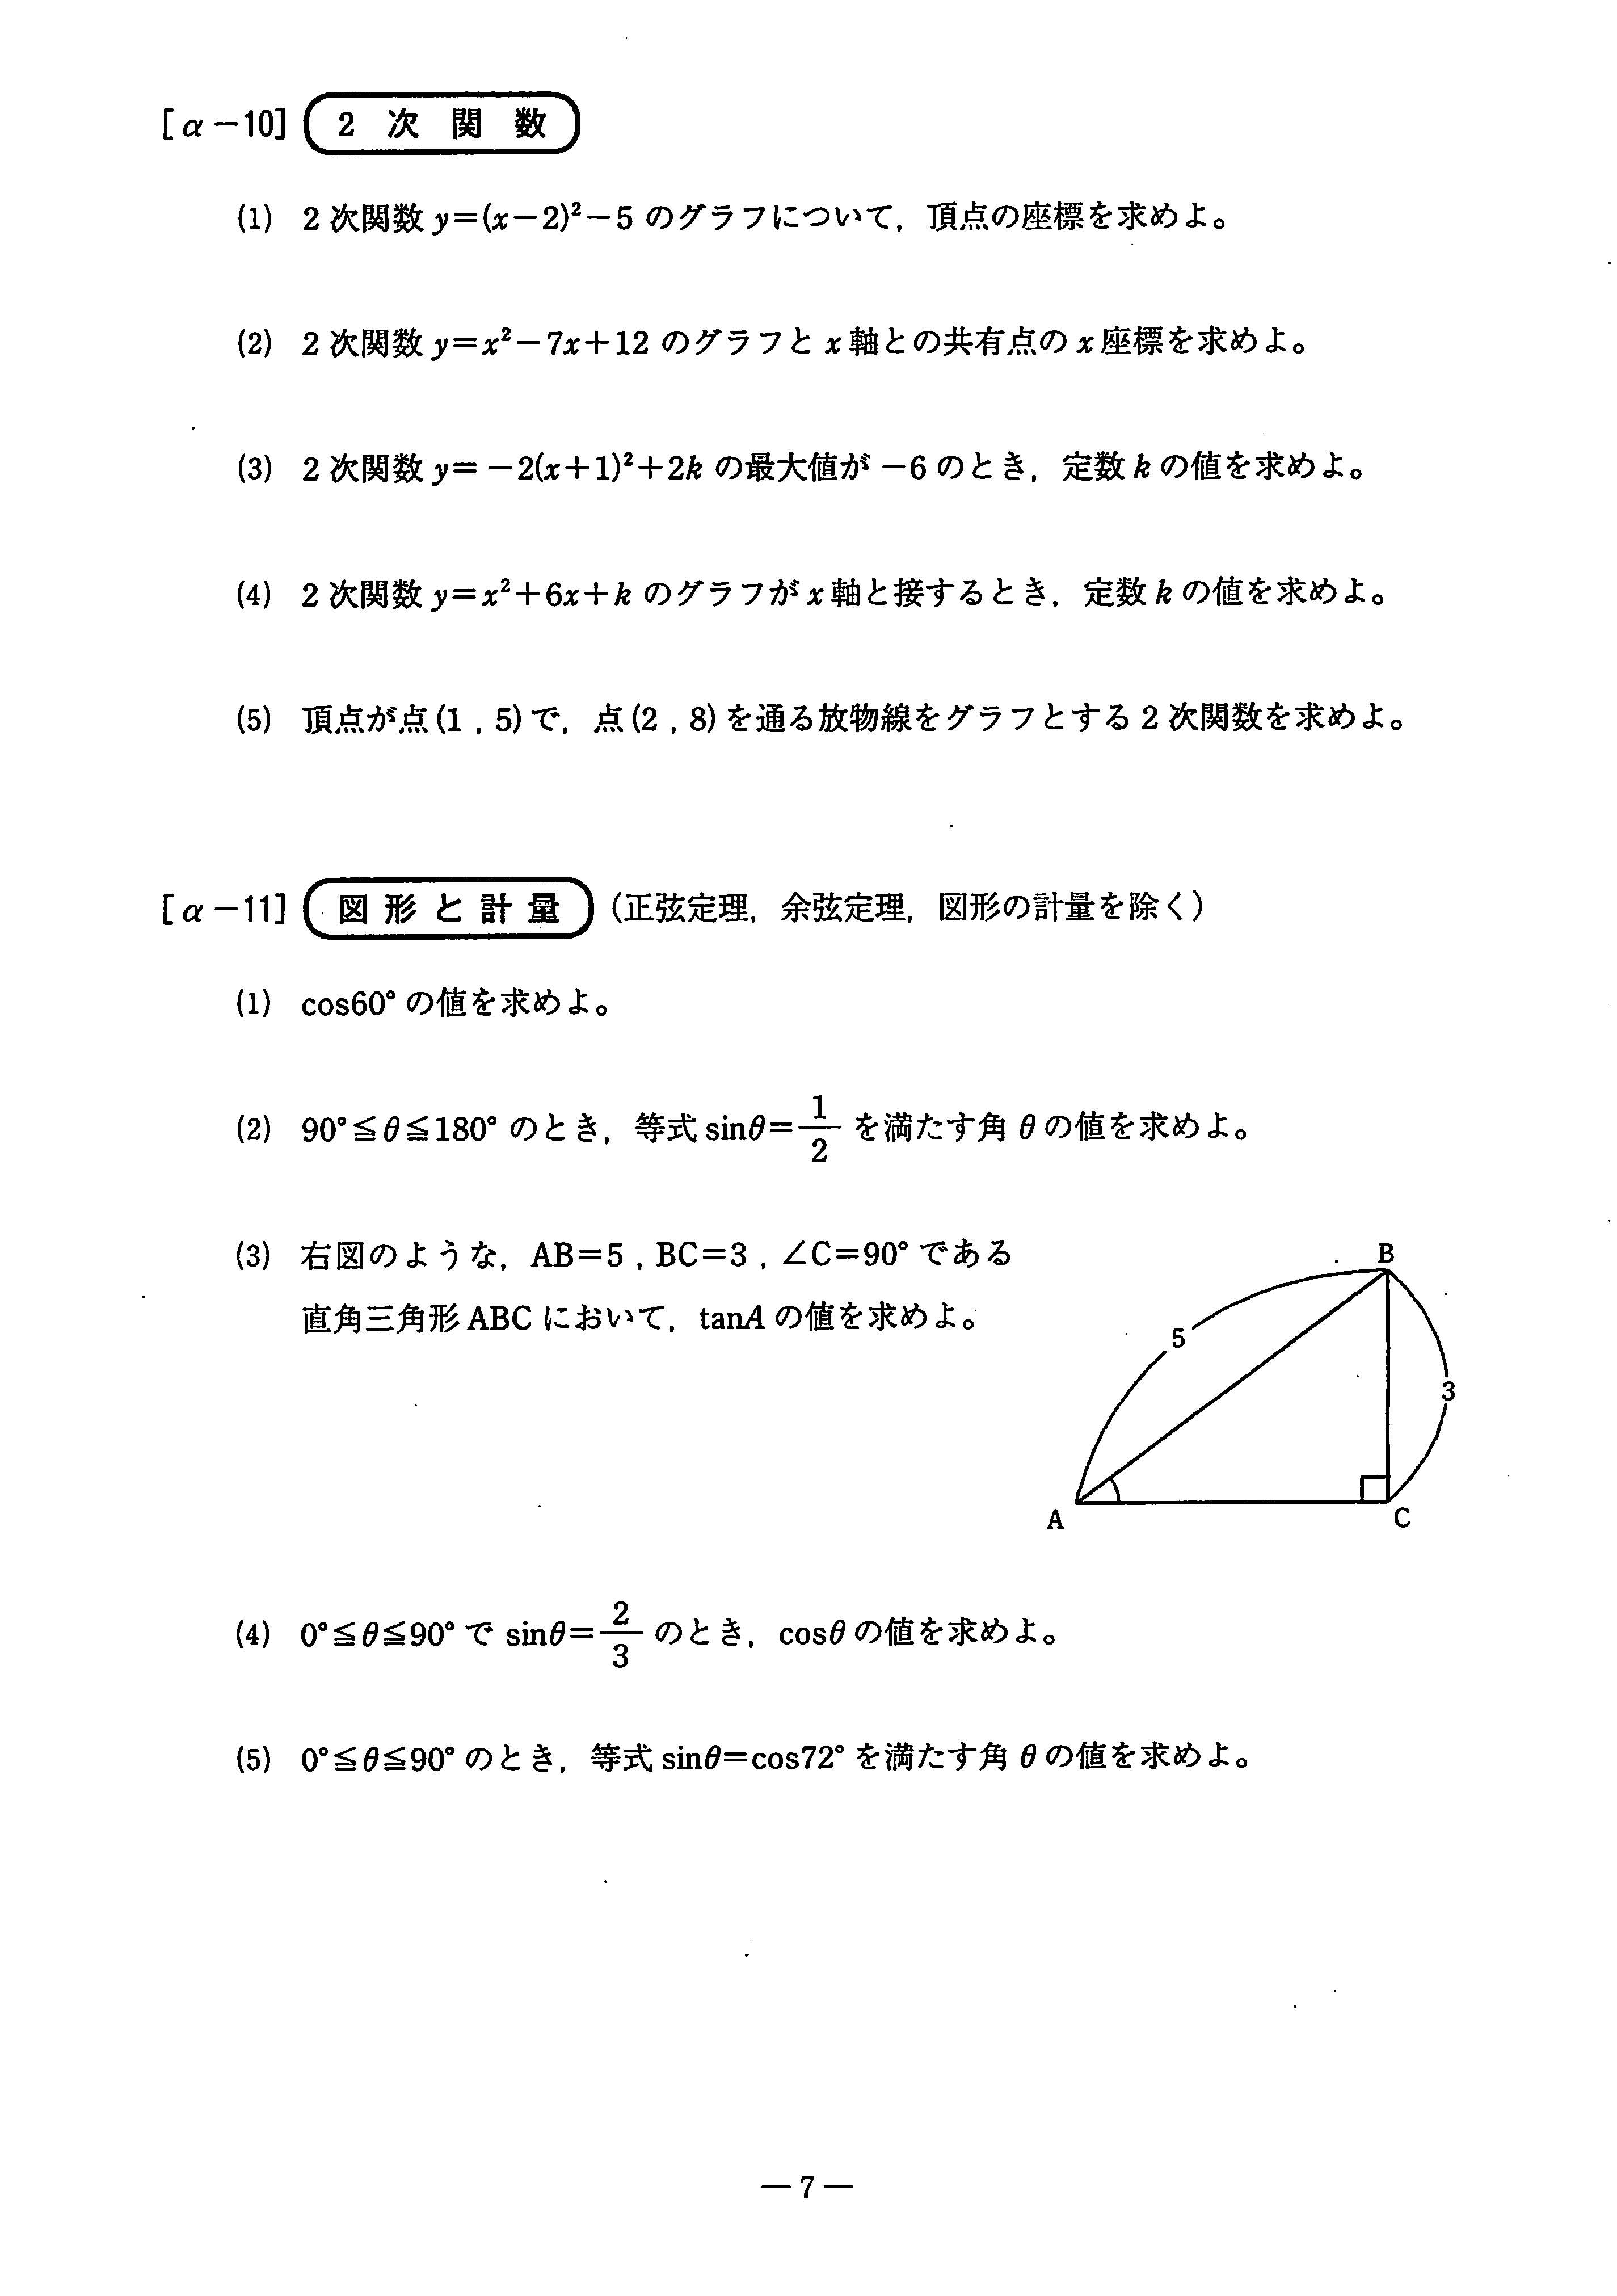 [α−10] 2 次 関 数
(1) 2次関数 y=(x−2)²−5 のグラフについて，頂点の座標を求めよ。
(2) 2次関数 y=x²−7x+12 のグラフと x 軸との共有点の x 座標を求めよ。
(3) 2次関数 y=−2(x+1)²+2k の最大値が −6 のとき，定数 k の値を求めよ。
(4) 2次関数 y=x²+6x+k のグラフが x 軸と接するとき，定数 k の値を求めよ。
(5) 頂点が点(1，5)で，点(2，8)を通る放物線をグラフとする2次関数を求めよ。
[α−11] 図 形 と 計 量 （正弦定理，余弦定理，図形の計量を除く）
(1) cos60° の値を求めよ。
(2) 90°≦θ≦180° のとき，等式 sinθ=1/2 を満たす角 θ の値を求めよ。
(3) 右図のような，AB=5，BC=3，∠C=90° である
直角三角形 ABC において，tanA の値を求めよ。
B
5
3
A
C
(4) 0°≦θ≦90° で sinθ=2/3 のとき，cosθ の値を求めよ。
(5) 0°≦θ≦90° のとき，等式 sinθ=cos72° を満たす角 θ の値を求めよ。
— 7 —